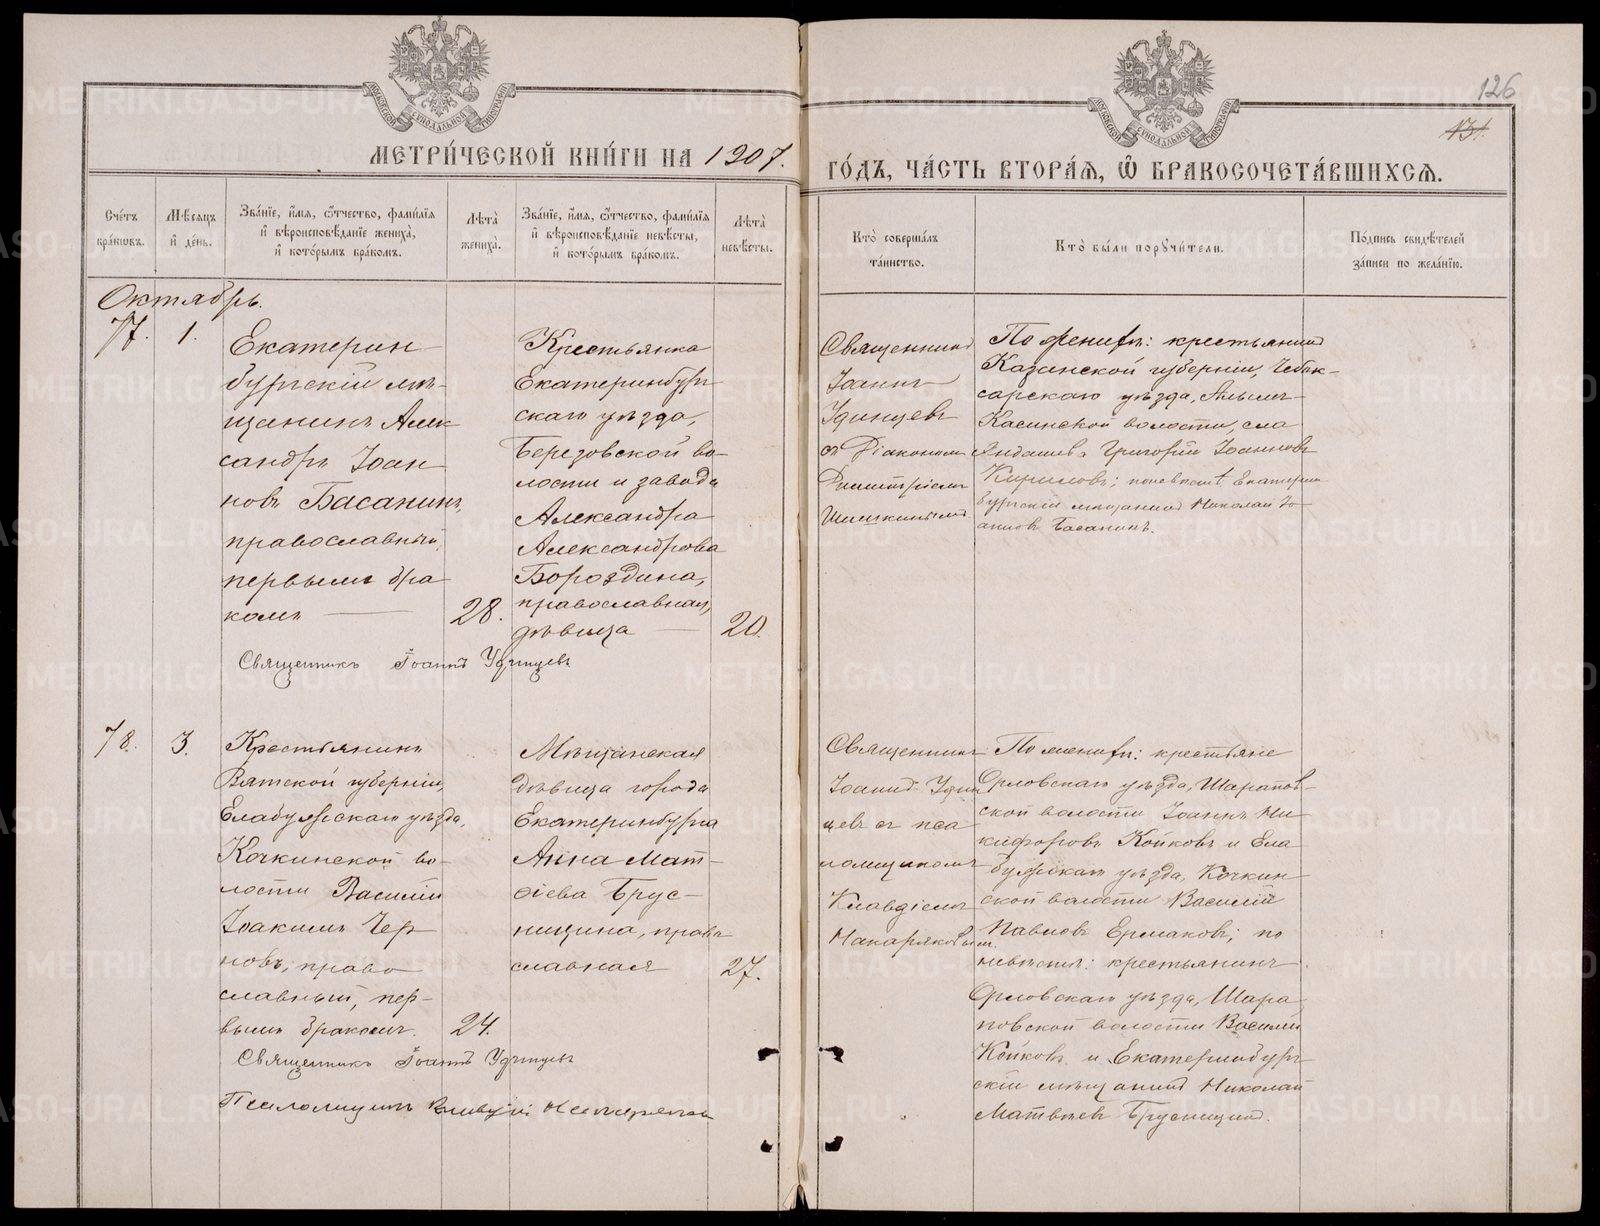 126
131.
МОСКОВСКОЙ СѴНОДАЛЬНОЙ ТИПОГРАФІИ
МОСКОВСКОЙ СѴНОДАЛЬНОЙ ТИПОГРАФІИ
МЕТРИ́ЧЕСКОЙ КНИ́ГИ НА 1907.
ГО́ДЪ, ЧА́СТЬ ВТОРА́Я, Ѡ҆ БРАКОСОЧЕТА́ВШИХСѦ.
Сче́тъ
бра́ковъ.
Мѣ́сяцъ
и҆ де́нь.
Зва́нїе, и҆́мя, ѻ҆́тчество, фами́лїя
и҆ вѣроисповѣ́данїе жениха̀,
и҆ кото́рымъ бра́комъ.
Лѣта̀
жениха̀.
Зва́нїе, и҆́мя, ѻ҆́тчество, фами́лїя
и҆ вѣроисповѣ́данїе невѣ́сты,
и҆ кото́рымъ бра́комъ.
Лѣта̀
невѣ́сты.
Кто̀ соверша́лъ
та́инство.
Кто̀ бы́ли порꙋчи́тели.
По́дпись свидѣ́телей
за́писи по жела́нїю.
Октябрь.
77.
1.
Екатерин
бургскій мѣ-
щанинъ Алек
сандръ Іоан
новъ Басанинъ,
православный,
первымъ бра
комъ
28.
Крестьянка
Екатеринбург
скаго уѣзда,
Березовской во-
лости и завода
Александра
Александрова
Бороздина,
православная,
дѣвица
20.
Священникъ
Іоаннъ
Удинцевъ
съ Діакономъ
Димитріемъ
Шишкинымъ
По женихѣ: крестьянинъ
Казанской губерніи, Чебок-
сарскаго уѣзда,
Касинской волости, села
Яндашева Григорій Іоанновъ
Кириловъ; по невѣстѣ Екатерин
бургскій мѣщанинъ Николай Іо
анновъ Басанинъ.
Священникъ Іоаннъ Удинцевъ
78.
3.
Крестьянинъ
Вятской губерніи,
Елабужскаго уѣзда,
Кочкинской во-
лости Василій
Іоакимъ Чер
новъ; право
славный, пер-
вымъ бракомъ.
24.
Мѣщанская
дѣвица города
Екатеринбурга
Анна Мат-
ѳіева Брус-
ницина, право
славная
27.
Священникъ
Іоаннъ Удин
цевъ съ пса
ломщикомъ
Клавдіемъ
Макаряковымъ.
По женихѣ: крестьяне
Орловскаго уѣзда, Шарапов-
ской волости Іоаннъ Ни
кифоровъ Койковъ и Ела
бужскаго уѣзда, Кочкин
ской волости Василій
Павловъ Ермаковъ; по
невѣстѣ: крестьянинъ
Орловскаго уѣзда, Шара
повской волости Василій
Койковъ и Екатеринбург
скій мѣщанинъ Николай
Матвѣевъ Брусницинъ.
Священникъ Іоаннъ Удинцевъ
Псаломщикъ Клавдій Макаряковъ
METRIKI.GASO-URAL.RU